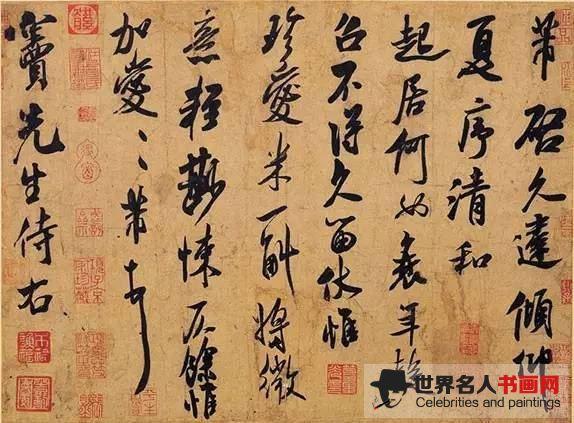 芾啓久違傾仰
夏序清和
起居何如衰年趍
召不得久留伏惟
珍愛米一斛將微
意輕尠悚仄餘惟
加愛〻芾頓首
竇先生侍右
世界名人书画网
Celebrities and paintings